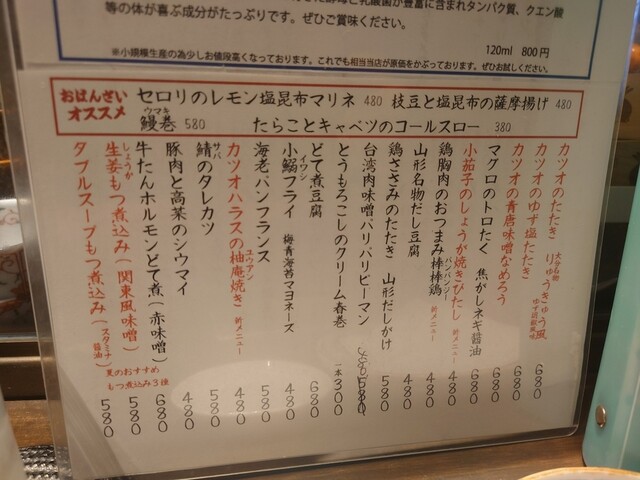 等の体が喜ぶ成分がたっぷりです。ぜひご賞味ください。
120ml 800円
※小規模生産の為少しお値段高くなっております。これでも相当当店が原価をかぶっております。ぜひお試しください。
おばんざい
オススメ
セロリのレモン塩昆布マリネ 480 枝豆と塩昆布の薩摩揚げ 480
ウマキ
鰻巻 580 たらことキャベツのコールスロー 380
カツオのたたき 680
カツオのゆず塩たたき
大分名物 りゅうきゅう風
カツオの青唐味噌なめろう 680
マグロのトロたく 焦がしネギ醤油 680
小茄子のしょうが焼きびたし 新メニュー 480
鶏胸肉のおつまみ棒棒鶏 バンバンジー 新メニュー 480
山形名物だし豆腐 480
鶏ささみのたたき 山形だしがけ 580
台湾肉味噌パリパリピーマン
とうもろこしのクリーム春巻 一本300
どて煮豆腐 680
小鰯フライ イワシ 梅青海苔マヨネーズ 480
海老パンフランス 580
カツオハラスの柚庵焼き ユウアン 新メニュー 480
鯖のタレカツ サバ 580
豚肉と高菜のシウマイ 480
牛たんホルモンどて煮(赤味噌) 680
夏のおすすめ
もつ煮込み3種
生姜もつ煮込み(関東風味噌) しょうが 580
タブルスープもつ煮込み(スタミナ醤油) 580